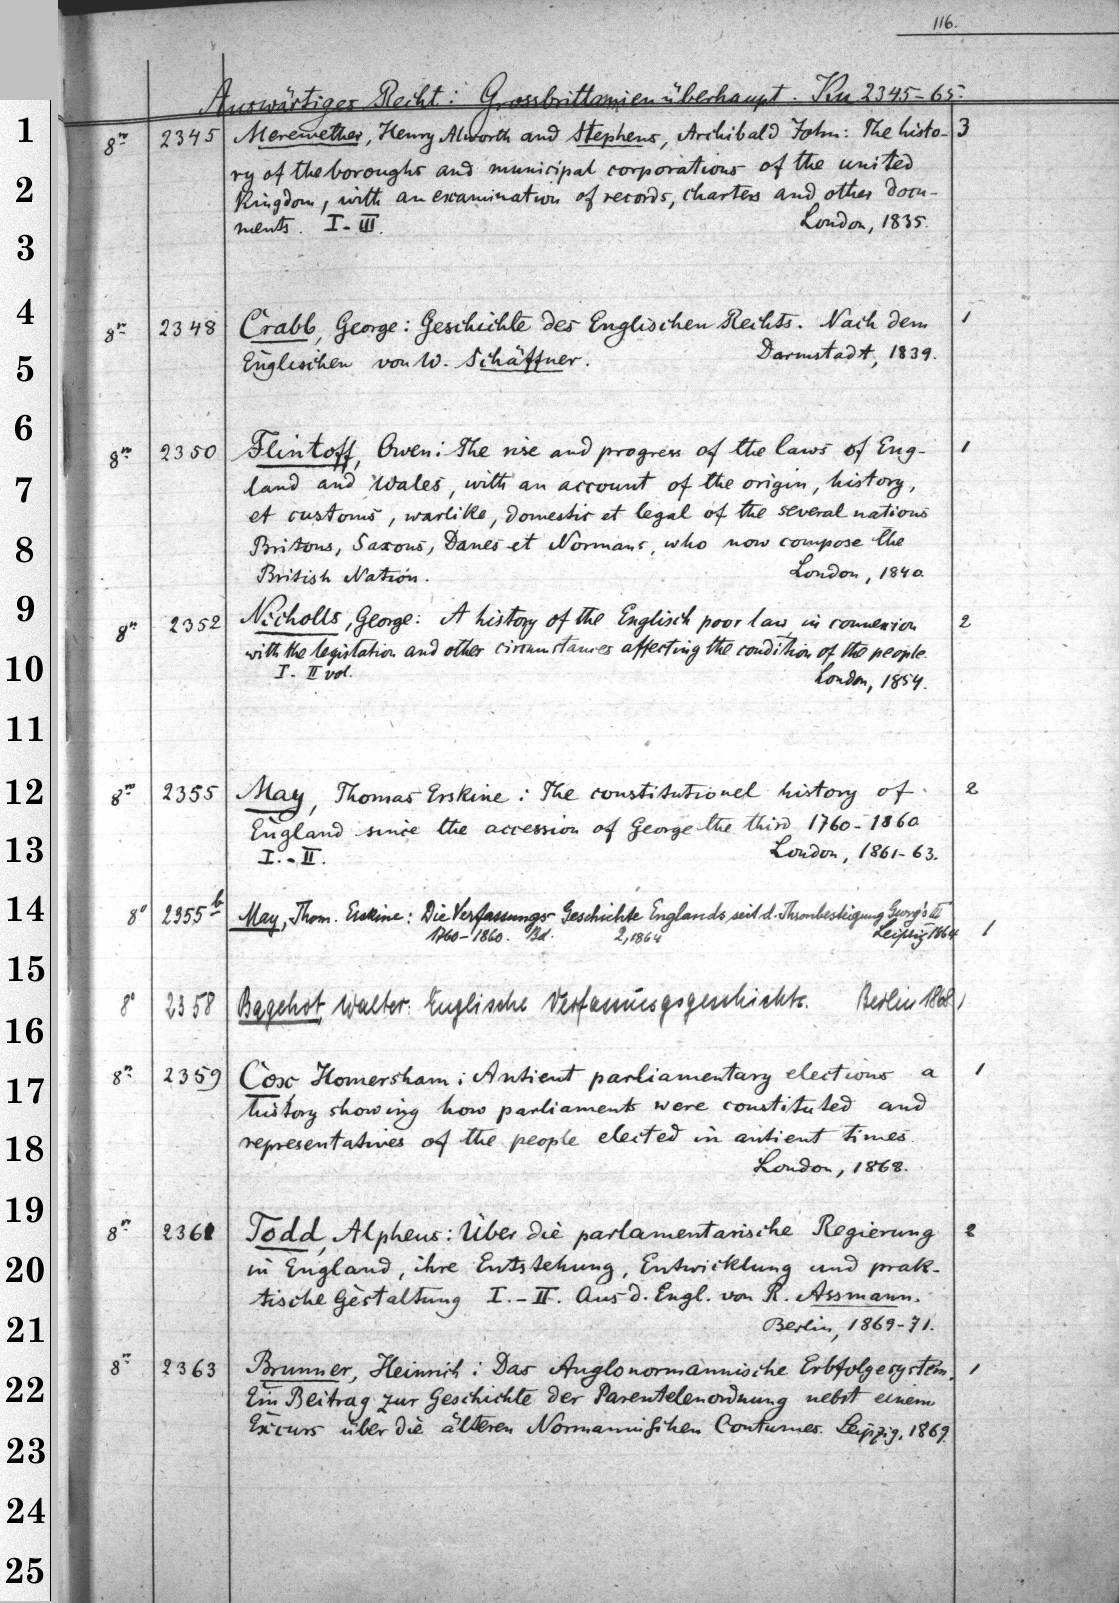 116.
Auswärtiges Recht: Grossbrittannien überhaupt. Ku 2345-65.
1
8º 2345 Merewether, Henry Alworth and Stephens, Archibald John: The histo- 3
2
ry of the boroughs and municipal corporations of the united
Kingdom, with an examination of records, charters and other docu-
3
ments. I-III. London, 1835.
4
8º 2348 Crabb, George: Geschichte des Englischen Rechts. Nach dem 1
5
Englischen von W. Schäffner. Darmstadt, 1839.
6
8º 2350 Flintoff, Owen: The rise and progress of the laws of Eng- 1
7
land and Wales, with an account of the origin, history,
et customs, warlike, domestic et legal of the several nations
8
Britons, Saxons, Danes et Normans, who now compose the
British Nation. London, 1840.
9
8º 2352 Nicholls, George: A history of the Englisch poor law in connexion 2
10
with the legislation and other circumstances affecting the condition of the people.
I. II vol. London, 1854.
11
12
8º 2355 May, Thomas Erskine: The constitutionel history of 2
13
England since the accession of George the third 1760-1860
I.-II. London, 1861-63.
14
8º 2355b May, Thom. Erskine: Die Verfassungs-Geschichte Englands seit d. Thronbesteigung Georg's III 1
1760-1860. Bd. 2, 1864 Leipzig 1864
15
8º 2358 Bagehot, Walter: Englische Verfassungsgeschichte. Berlin 1868, 1
16
17
8º 2359 Cox Homersham: Antient parliamentary elections a 1
history showing how parliaments were constituted and
18
representatives of the people elected in antient times.
London, 1868.
19
8º 2361 Todd, Alpheus: Über die parlamentarische Regierung 2
20
in England, ihre Entstehung, Entwicklung und prak-
tische Gestaltung I.-II. Aus d. Engl. von R. Assmann.
21
Berlin, 1869-71.
8º 2363 Brunner, Heinrich: Das Anglonormannische Erbfolgesystem. 1
22
Ein Beitrag zur Geschichte der Parentelenordnung nebst einem
Excurs über die älteren Normannischen Coutumes. Leipzig, 1869.
23
24
25